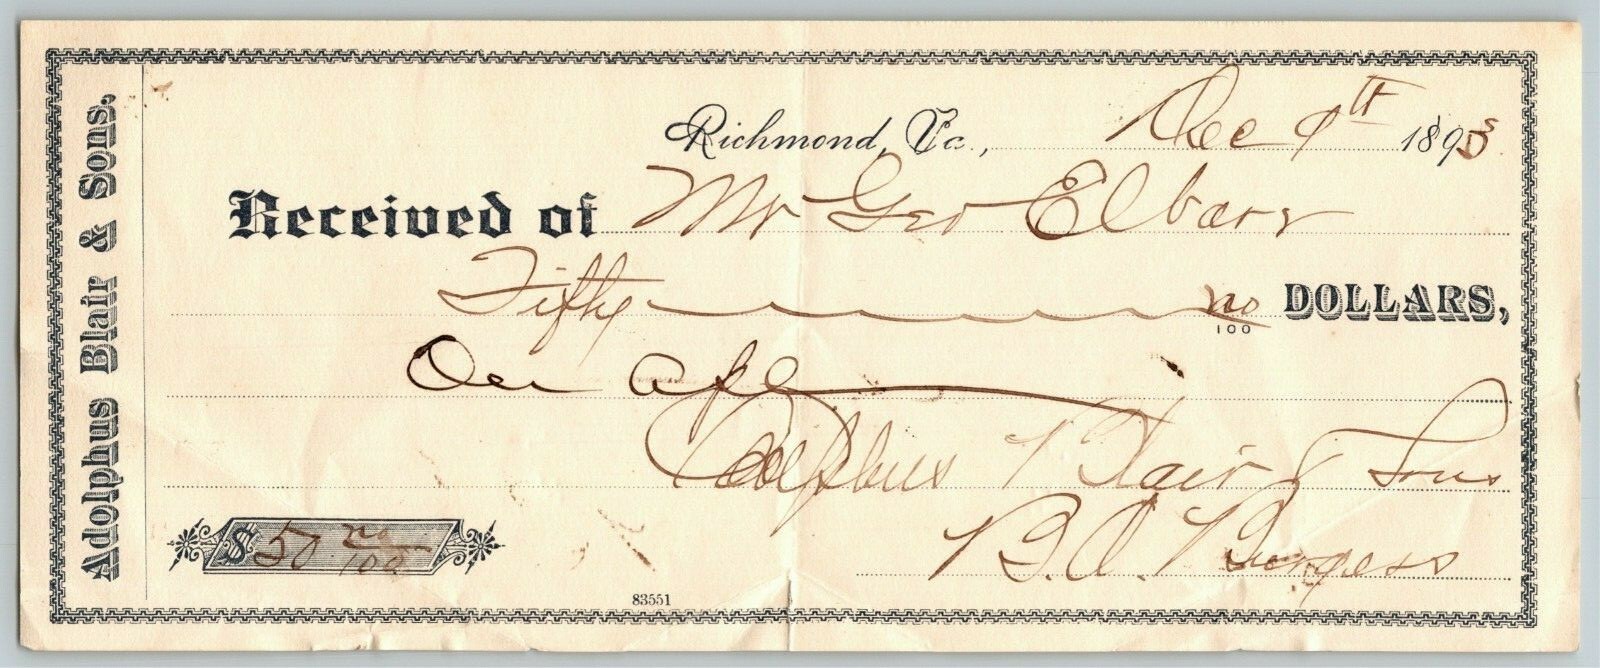 Adolphus Blair & Sons.
Richmond, Va., Dec 9th 1893
Received of Mr Geo Elbarr
Fifty no/100 DOLLARS,
On a/c
Adolphus Blair & Sons
$50 no/100
B.A. Burgess
83551